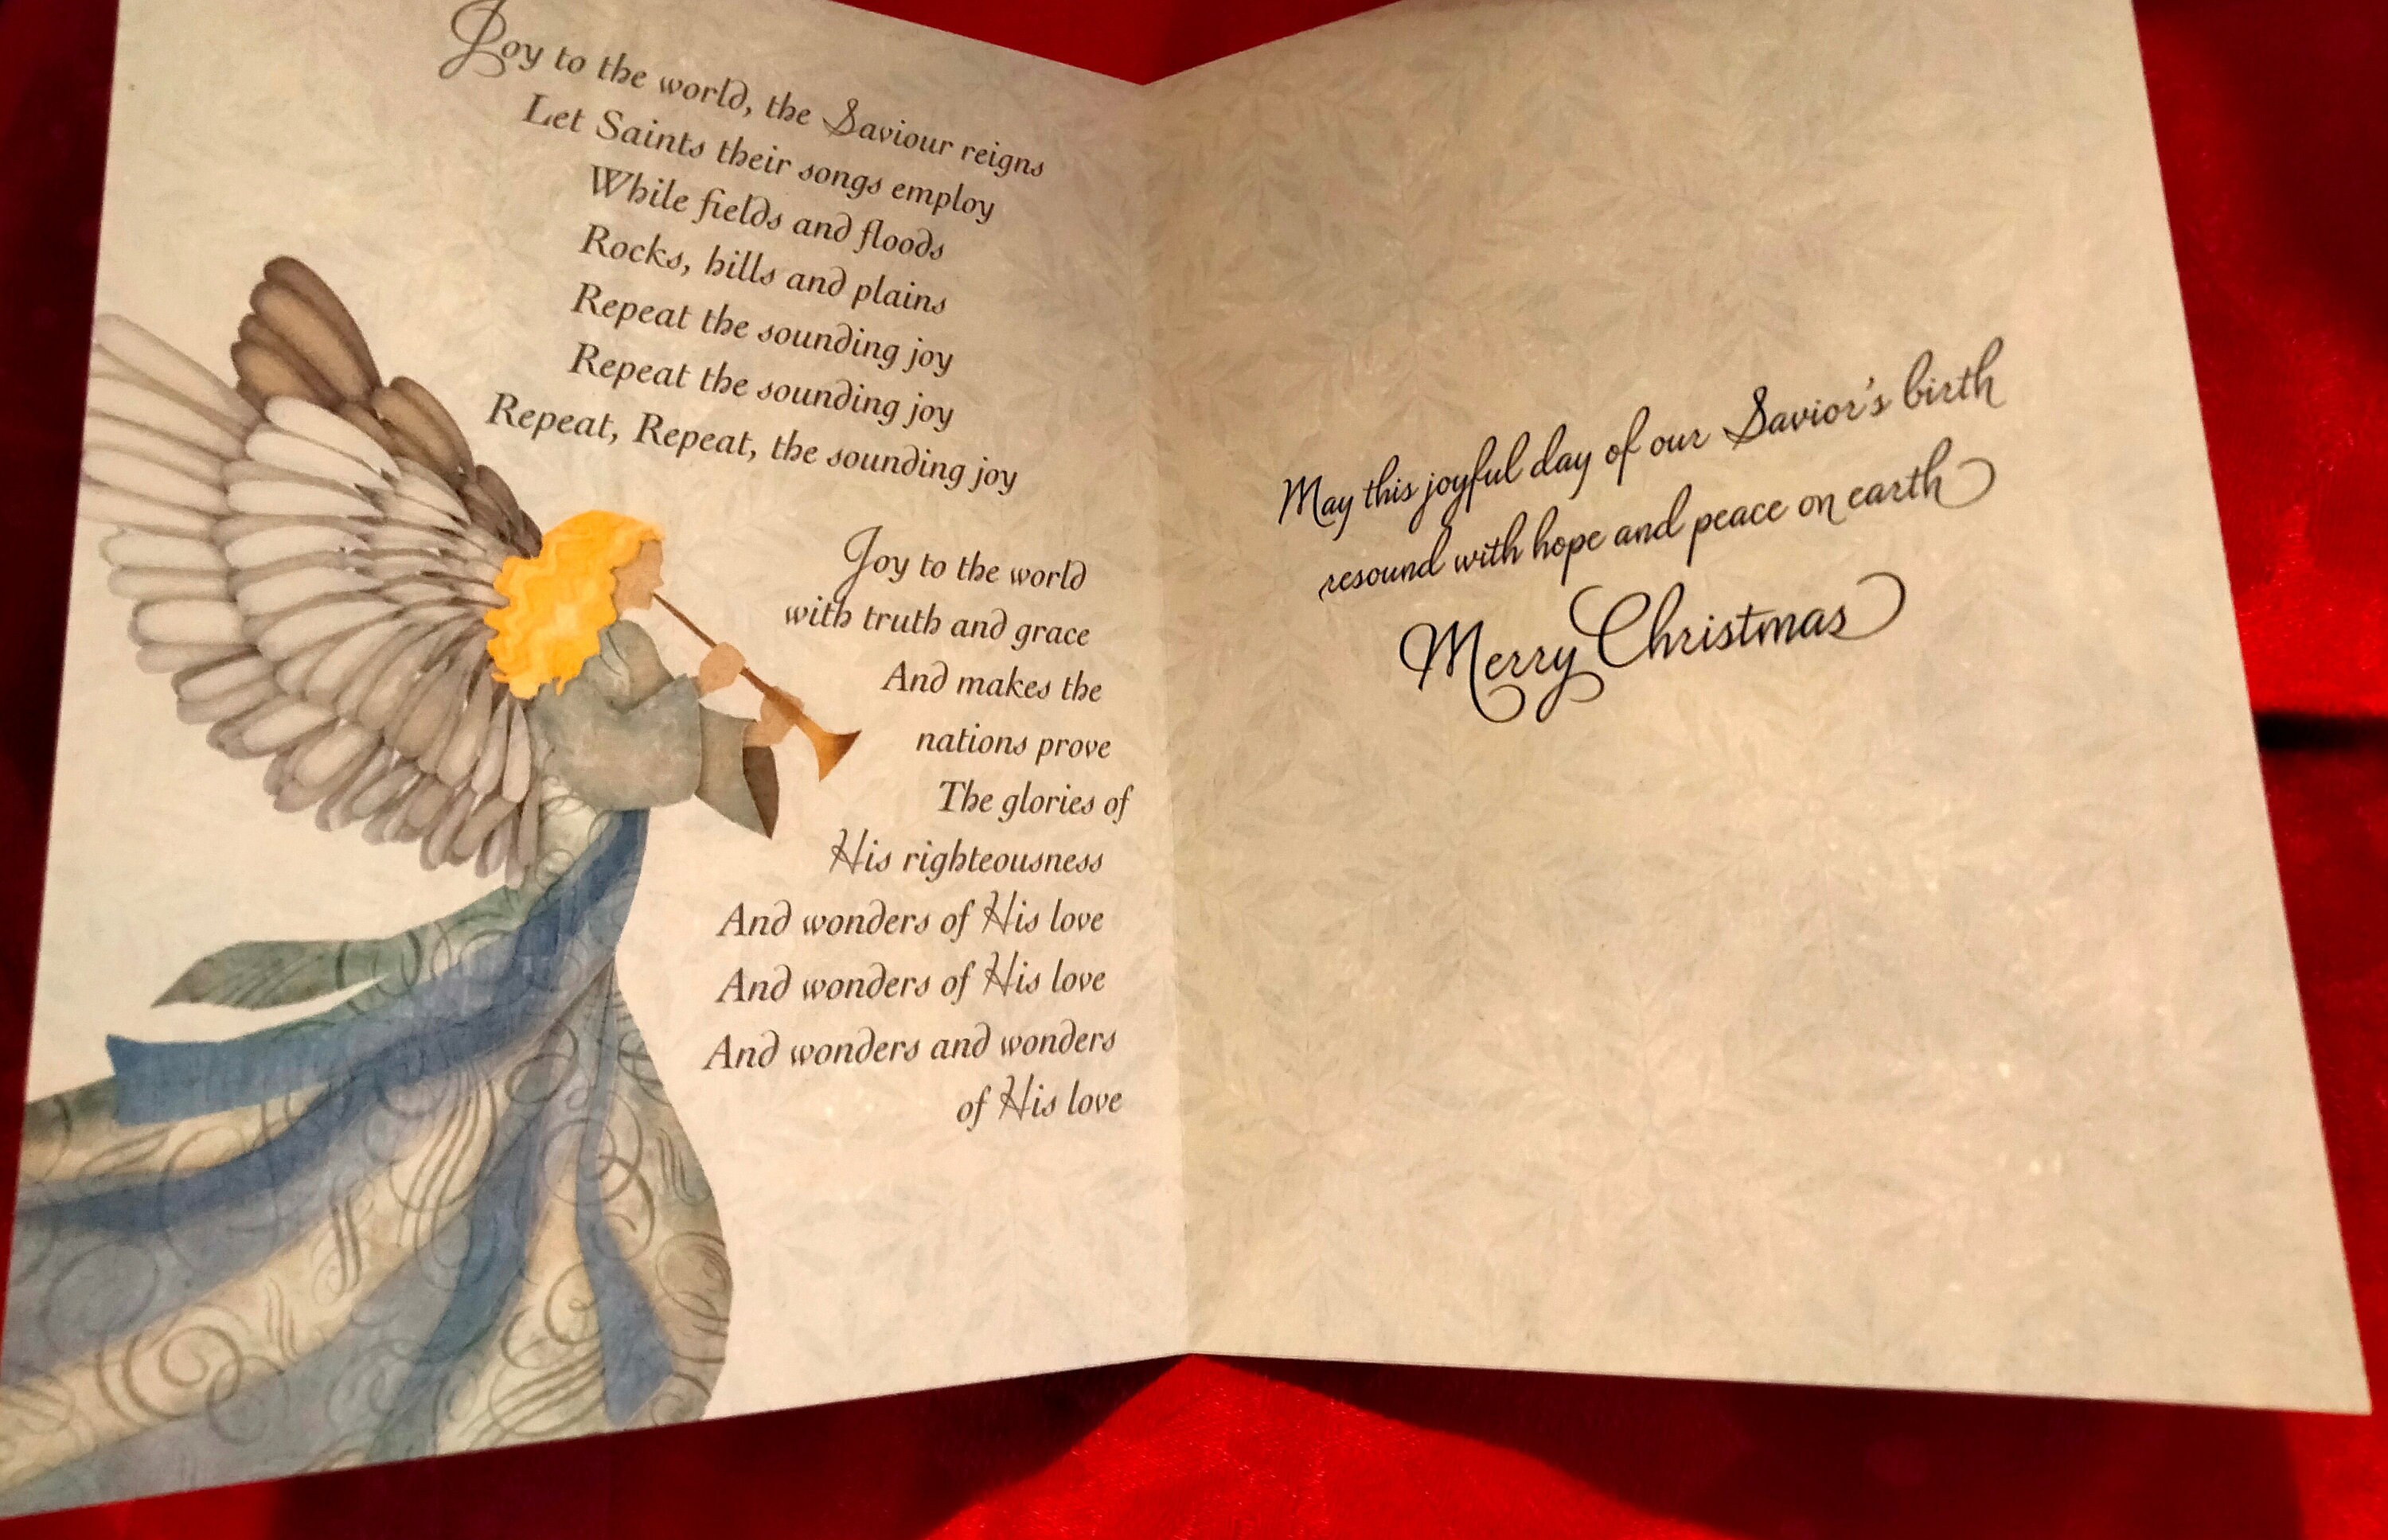 Joy to the world, the Saviour reigns
Let Saints their songs employ
While fields and floods
Rocks, hills and plains
Repeat the sounding joy
Repeat the sounding joy
Repeat, Repeat, the sounding joy
Joy to the world
with truth and grace
And makes the
nations prove
The glories of
His righteousness
And wonders of His love
And wonders of His love
And wonders and wonders
of His love
May this joyful day of our Savior's birth
resound with hope and peace on earth
Merry Christmas